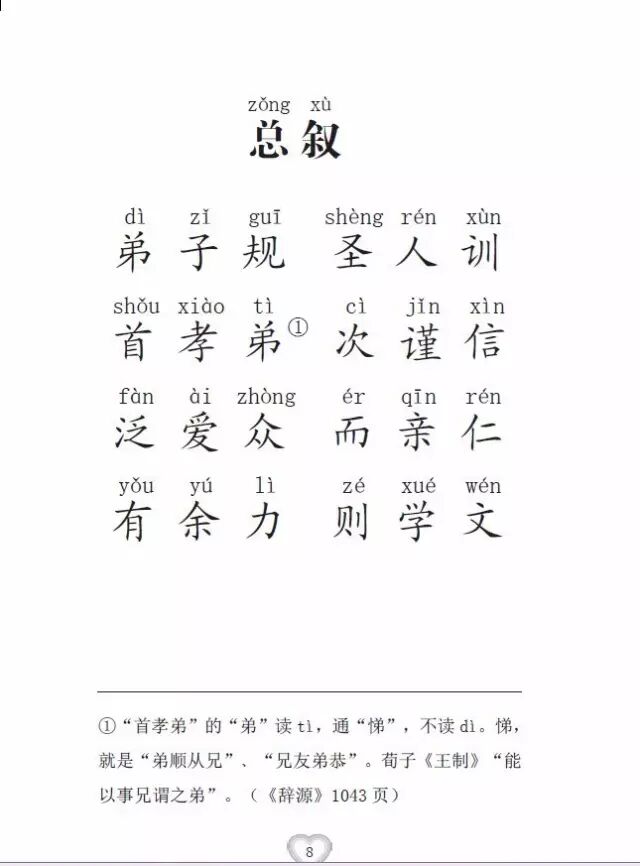 zǒng xù
总叙
dì zǐ guī shèng rén xùn
弟子规 圣人训
shǒu xiào tì cì jǐn xìn
首孝弟① 次谨信
fàn ài zhòng ér qīn rén
泛爱众 而亲仁
yǒu yú lì zé xué wén
有余力 则学文
①“首孝弟”的“弟”读tì,通“悌”,不读dì。悌,
就是“弟顺从兄”、“兄友弟恭”。荀子《王制》“能
以事兄谓之弟”。(《辞源》1043页)
8